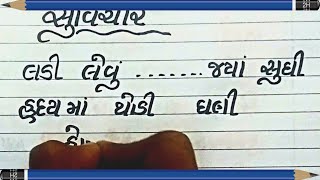 સુવિચાર
લડી લેવું ........ જયાં સુધી
હ્રદય માં થોડી ઘણી